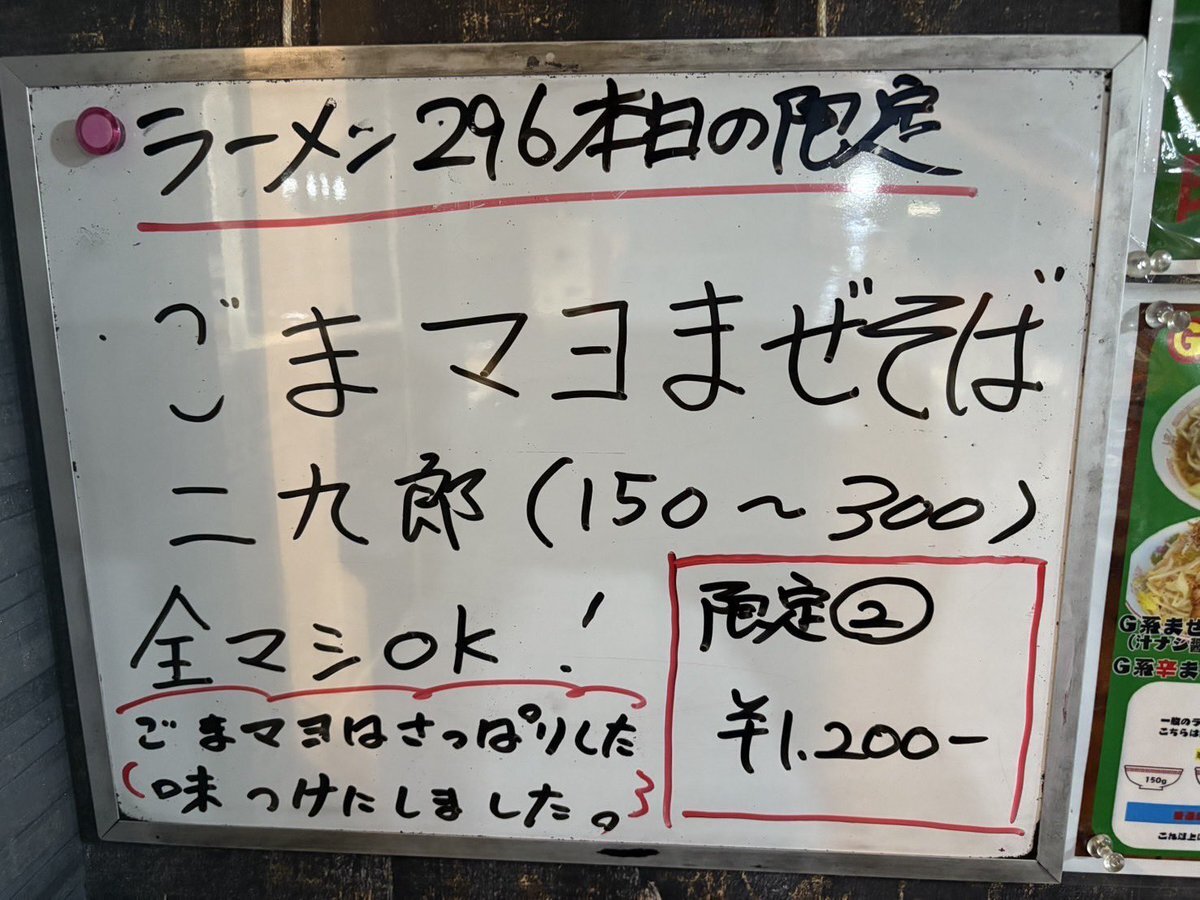 ラーメン296本日の限定
ごまマヨまぜそば
二九郎(150〜300)
全マシOK!
ごまマヨはさっぱりした
味つけにしました。
限定②
¥1.200-
G系まぜ
(汁ナシ
G系辛ま
一般のラ
こちらは
150g
これ以上